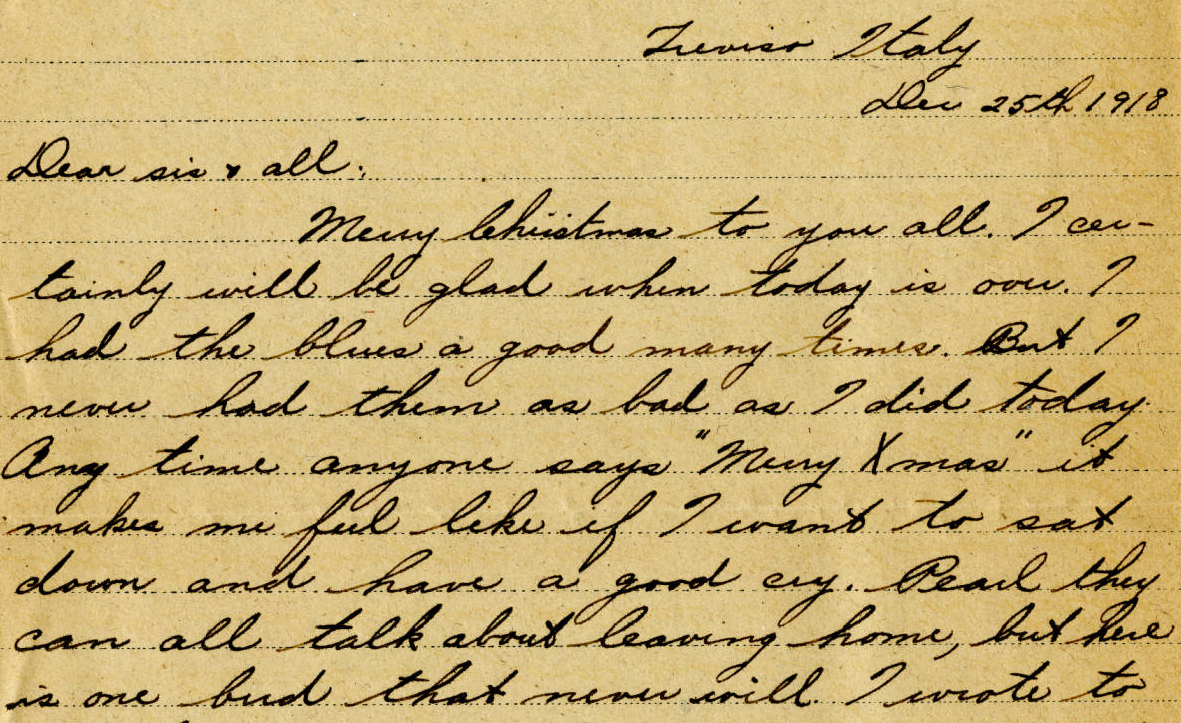 Treviso Italy
Dec 25th 1918
Dear sis & all:
Merry Christmas to you all. I cer-
tainly will be glad when today is over. I
had the blues a good many times. But I
never had them as bad as I did today.
Any time anyone says "Merry Xmas" it
makes me feel like if I want to sat
down and have a good cry. Pearl they
can all talk about leaving home, but here
is one bird that never will. I wrote to